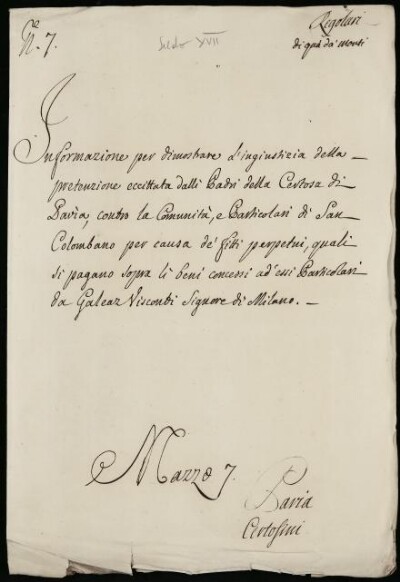 N.º 7.
Secolo XVII
Regolari
di quà da monti
Informazione per dimostrare l'ingiusticia della
pretenzione eccittata dalli Padri della Certosa di
Pavia, contro la Comunità, e Particolari di San
Colombano per causa de' fitti perpetui, quali
si pagano sopra li beni concessi ad' essi Particolari
da Galeaz Visconti Signore di Milano. -
Mazzo 7.
Pavia
Certosini